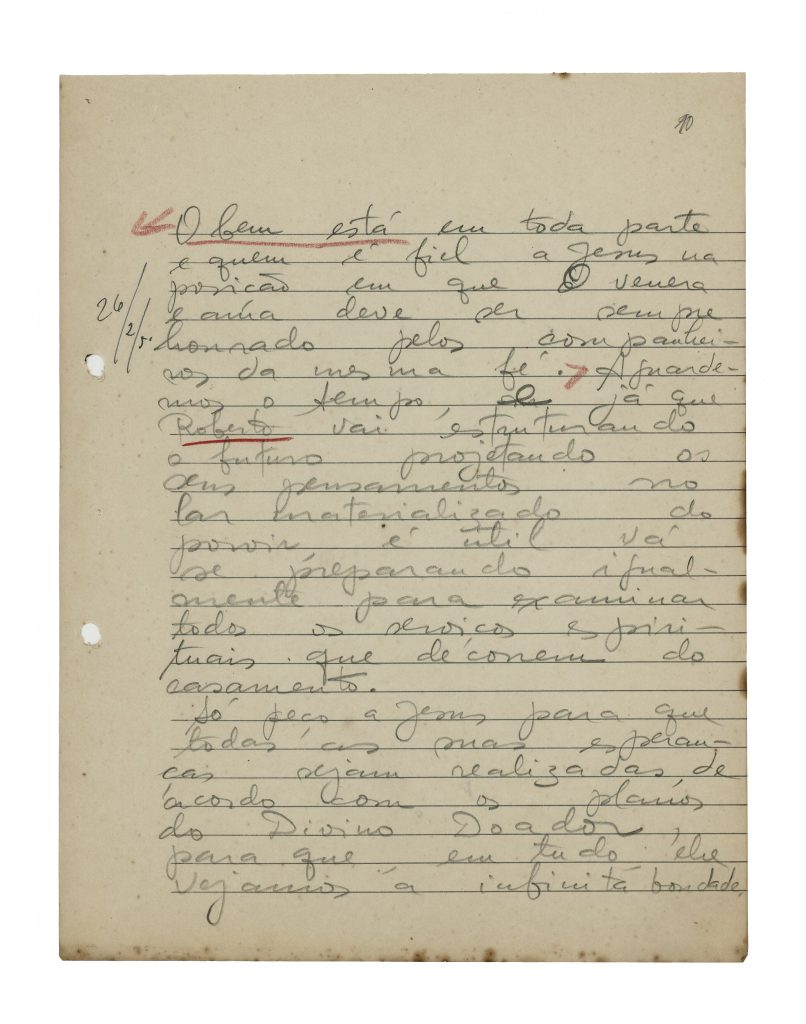 10
O bem está em toda parte
e quem é fiel a Jesus na
posição em que O venera
e ama deve ser sempre
26/2/50
honrado pelos companhei-
ros da mesma fé. Aguarde-
mos o tempo, já que
Roberto vai estruturando
o futuro projetando os
seus pensamentos no
lar materializado do
porvir, é útil vá
se preparando igual-
mente para examinar
todos os serviços espiri-
tuais que decorrem do
casamento.
Só peço a Jesus para que
todas as suas esperan-
ças sejam realizadas de
acordo com os planos
do Divino Doador,
para que em tudo ele
vejamos a infinita bondade,